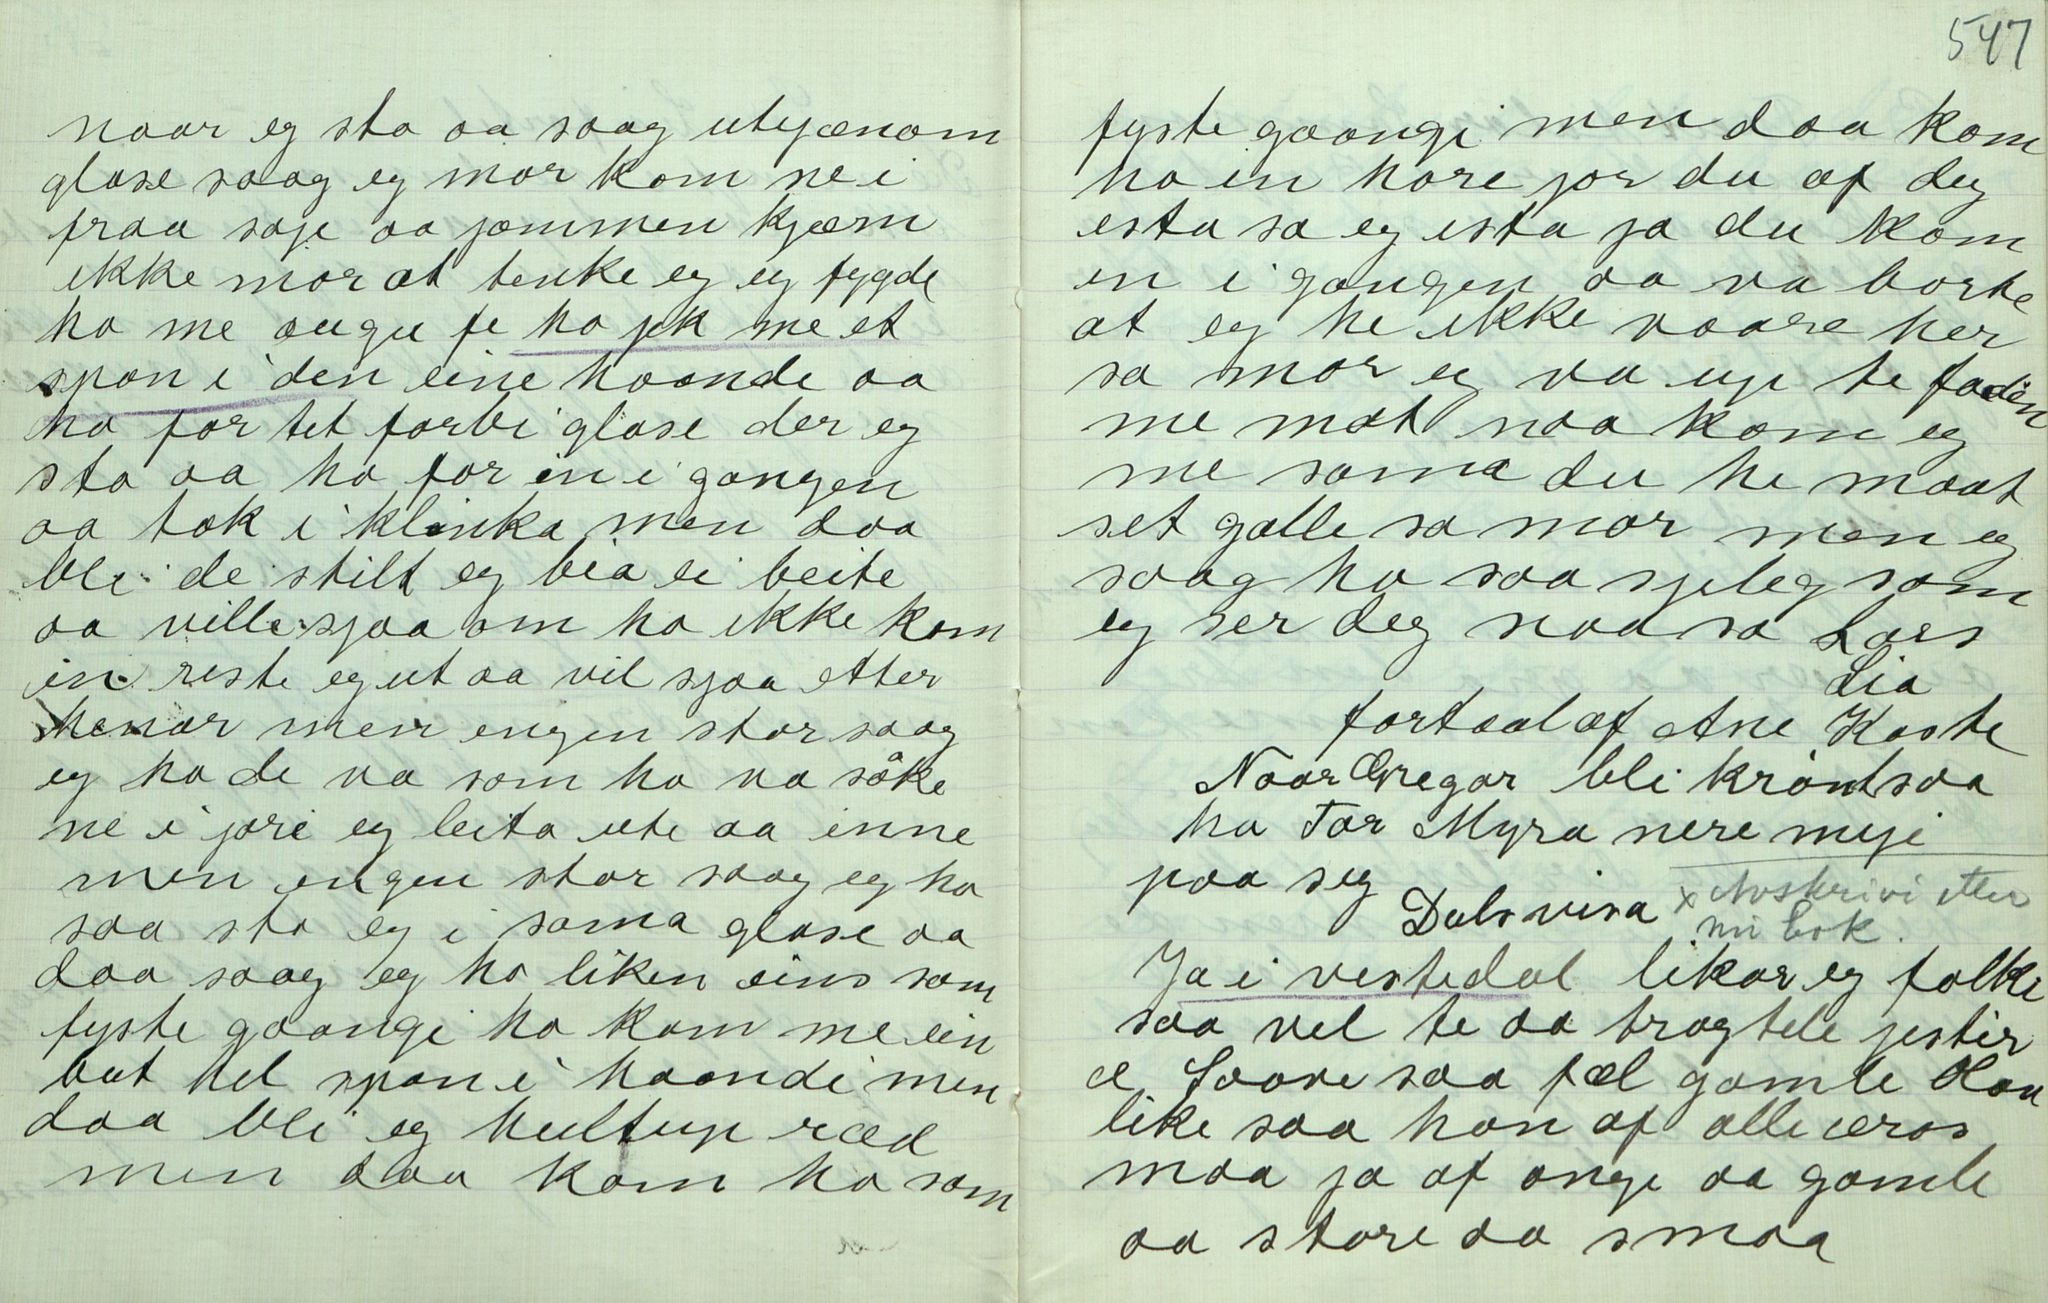 naar eg sto aa saag utejænom
glase saag eg mor kom ne i
fraa saje aa jammen kjæm
ikke mor at tenke eg eg fygde
ho me augu fe ho jek me et
spon i den eine haande aa
ho for tet forbi glase der eg
sto aa ho for in i gangen
aa tok i klinka men daa
blei de stilt eg bia ei beite
aa ville sjaa om ho ikke kom
in reste eg ut aa vil sjaa etter
henar men engen star saag
eg ho de va som ho va såke
ne i jore eg leita ute aa inne
men engen star saag eg ho
saa sto eg i sama glase aa
daa saag eg ho liken eins som
fyste gaangi ho kom me ein
but hel spon i haandi men
daa blei eg heiltup ræd
men daa kom ho som
547
fyste gaangi men daa kom
ho in hare jor du af deg
esta sa eg ista ja du kom
en i gangen aa va borte
at eg he ikke vaare her
sa mor eg va up te fadin
me mat naa kom eg
me sama du he maat
set galle sa mor men eg
saag ho saa sjeleg som
eg ser deg naa sa Lars
Lia
fortaal af Ane Kaste
Naar Gregar bli krònt saa
ha Tor Myra nere myji
paa seg
Dalsvisa x Avskrivi etter
mi bok.
Ja i vestedal likar eg falke
saa vel te aa tragtele jestir
e Saave saa fæl gamle Olav
like saa han af alle æros
maa ja af onge aa gamle
aa store aa smaa